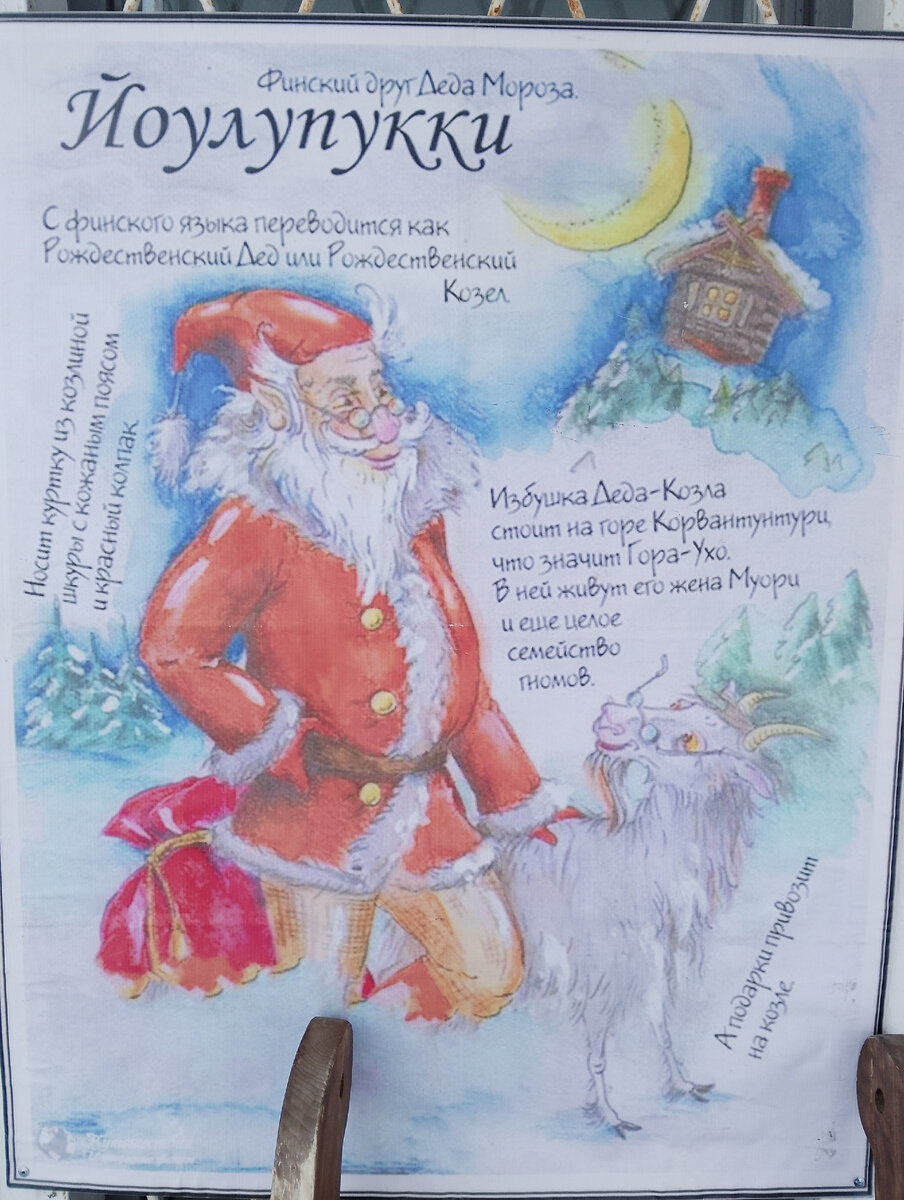 Финский друг Деда Мороза.
Йоулупукки
С финского языка переводится как
Рождественский Дед или Рождественский
Козел
Носит куртку из козлиной
шкуры с кожаным поясом
и красный колпак
Избушка Деда-Козла
стоит на горе Корвантунтури,
что значит Гора-Ухо.
В ней живут его жена Муори
и еще целое
семейство
гномов.
А подарки привозит
на козле